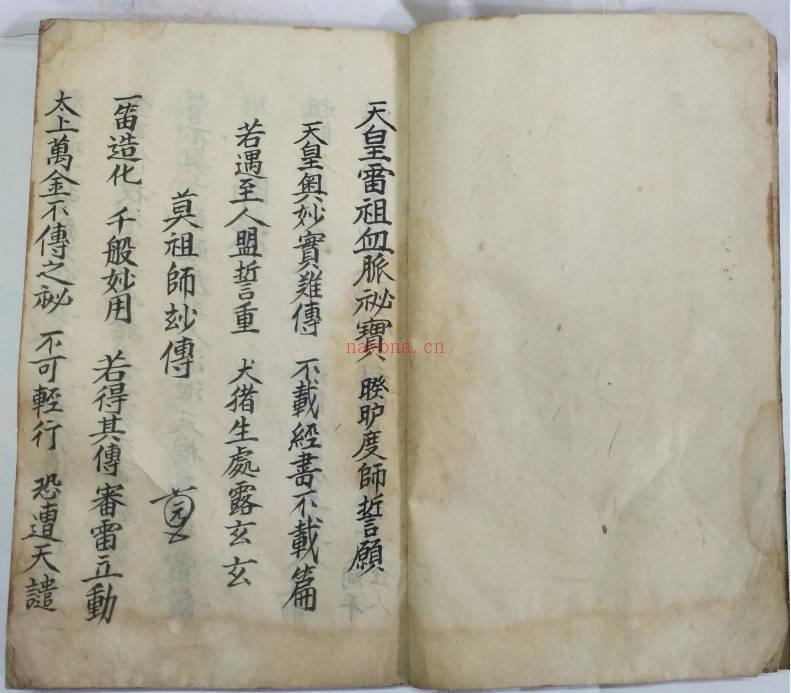 天皇雷祖血脈祕寶 睽𭥍度師誓願
天皇奥妙實難傳 不載經書不載篇
若遇至人盟誓重 犬猪生處露玄玄
莫祖師玅傳
一笛造化 千般妙用 若得其傳 審雷立動
太上萬金不傳之祕 不可輕行 恐遭天譴
navona.cn